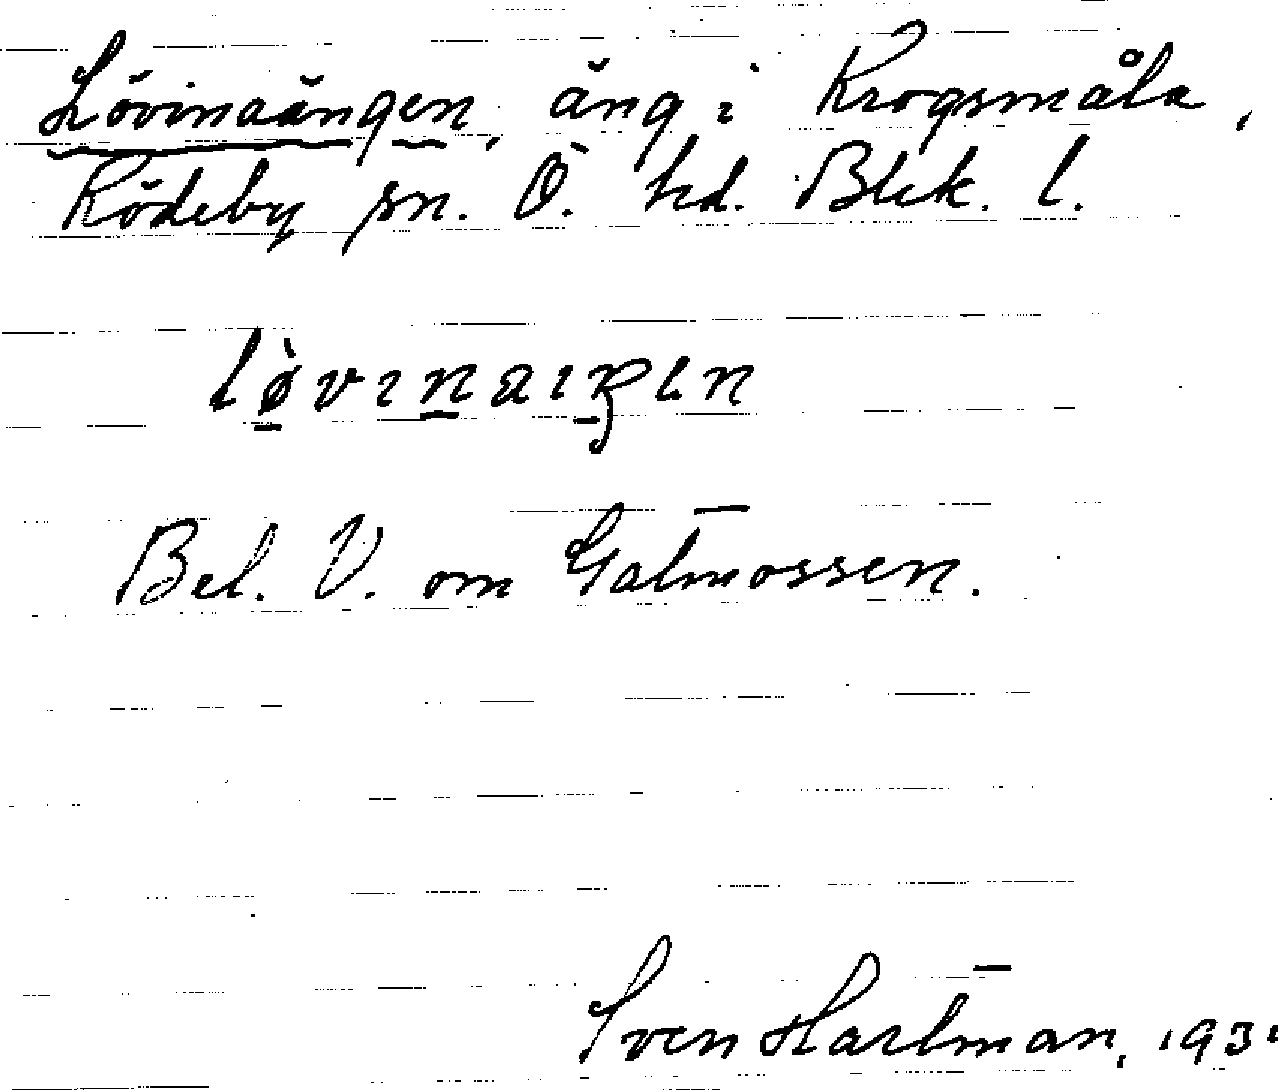 Lövinaängen, äng i Krogsmåla,
Rödeby sn. Ö. hd. Blek. l.
Bel. V. om Galmossen.
Sven Hartman, 193